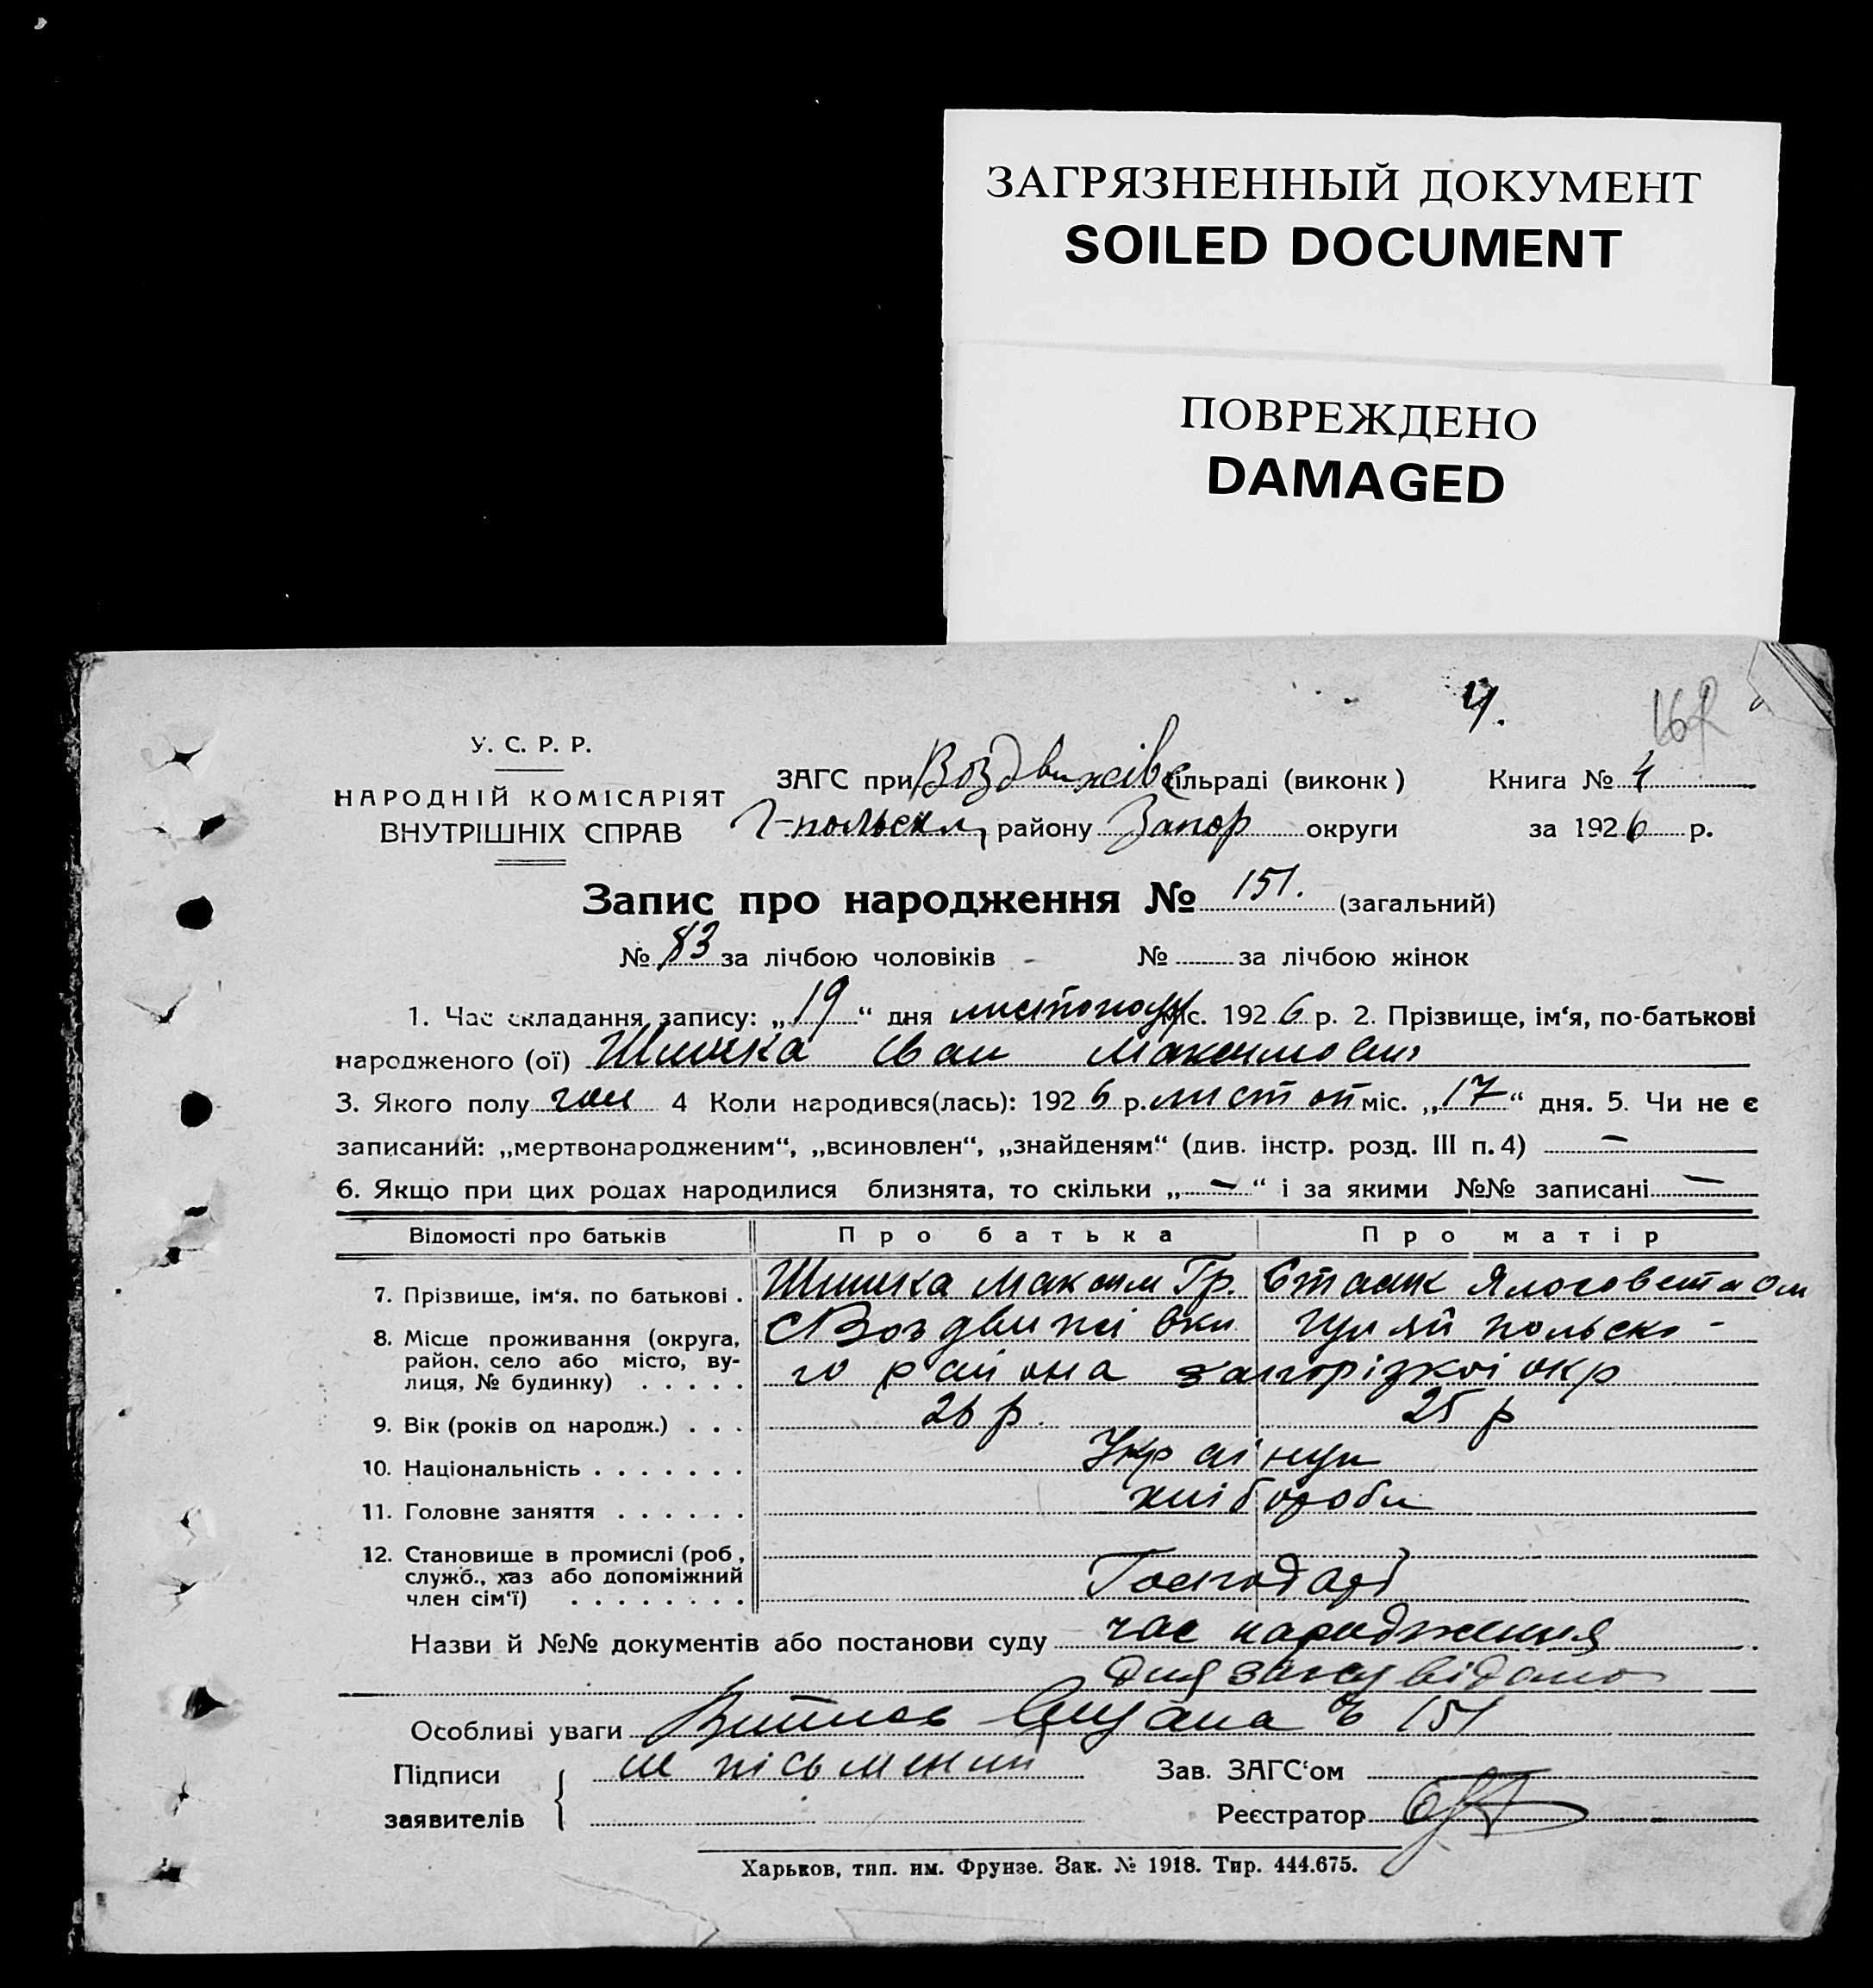 ЗАГРЯЗНЕННЫЙ ДОКУМЕНТ
SOILED DOCUMENT
ПОВРЕЖДЕНО
DAMAGED
4.
У. С. Р. Р.
НАРОДНІЙ КОМІСАРІЯТ
ВНУТРІШНІХ СПРАВ
ЗАГС при Воздвижівс сільраді (виконк) Книга № 4
району Запор округи за 1926 р.
Запис про народження № 151. (загальний)
№ 83 за лічбою чоловіків - № за лічбою жінок
1. Час складання запису: „19“ дня листопаду міс. 1926 р. 2. Прізвище, ім‘я, по-батькові
народженого (ої) Шишка Іван Максимович
3. Якого полу чол 4 Коли народився(лась): 1926 р. листоп міс. „17“ дня. 5. Чи не є
записаний: „мертвонародженим“, „всиновлен“, „знайденям“ (див. інстр. розд. III п. 4) —
6. Якщо при цих родах народилися близнята, то скільки „—“ і за якими №№ записані —
Відомості про батьків Про батька Про матір
7. Прізвище, ім‘я, по батькові . Шишка Максим Гр.
8. Місце проживання (округа, район, село або місто, вулиця, № будинку) . . . . . с Воздвижівки Гуляйпольско-
го района запорізкоі окр
9. Вік (років од народж.) . . . 26 р. 25 р
10. Національність . . . . . . . Украінци
11. Головне заняття . . . . . . хліборобы
12. Становище в промислі (роб, служб., хаз або допоміжний член сім‘ї) . . . . . . . . Господарі
Назви й №№ документів або постанови суду час народження
Особливі уваги Витись видана № 151
Підписи не письменни Зав. ЗАГС‘ом
заявителів Реєстратор
Харьков, тип. им. Фрунзе. Зак. № 1918. Тир. 444.675.